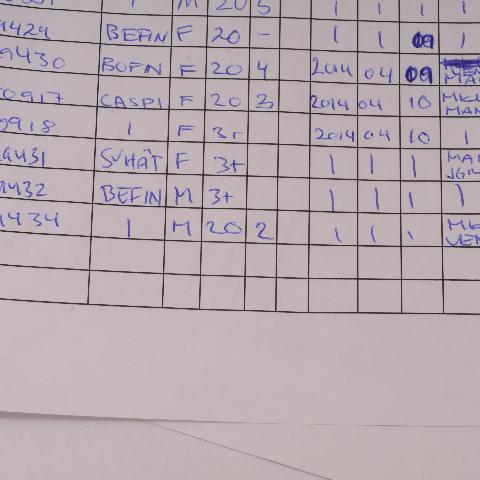 M 20 5 1 1 1 1
9429 BEFIN F 20 - 1 1 09 1
9430 BOFIN F 20 4 2014 04 09
00917 CASPI F 20 3 2014 04 10 MKU MAN
0918 1 F 3+ 2014 04 10 1
9431 SVHÄT F 3+ 1 1 1
9432 BEFIN M 3+ 1 1 1 1
9434 1 M 20 2 1 1 1 VEN